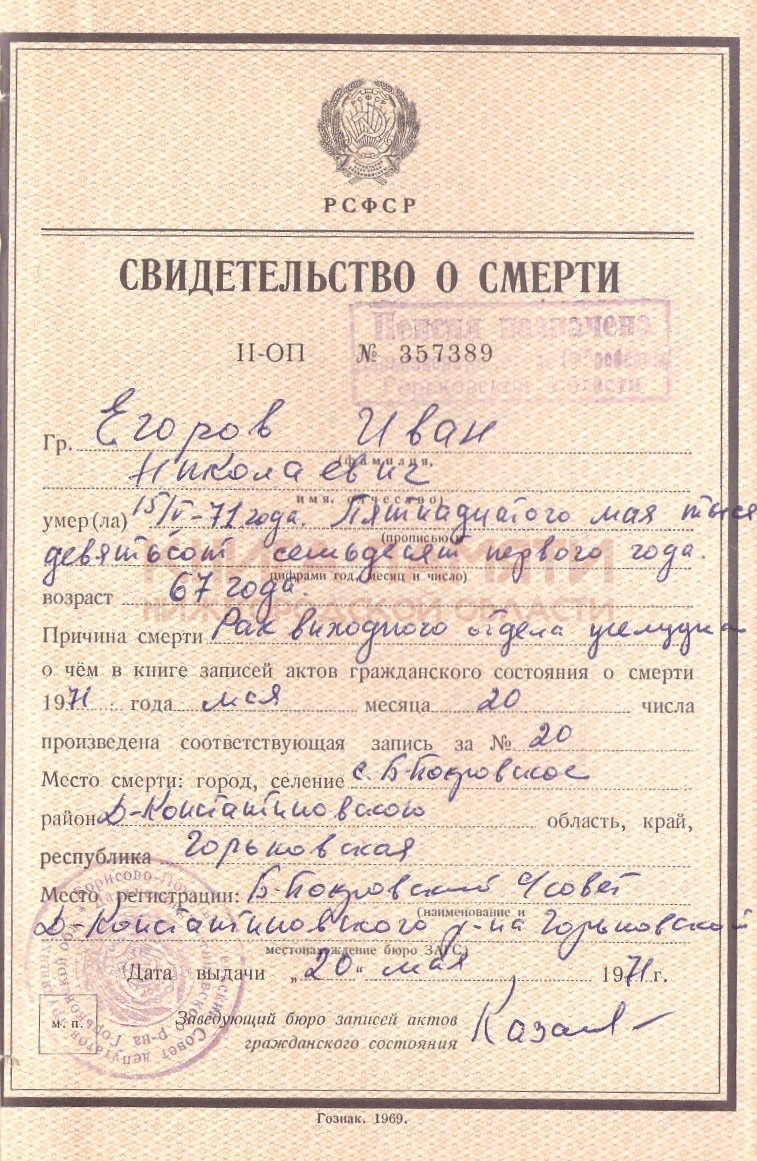 РСФСР
РСФСР
СВИДЕТЕЛЬСТВО О СМЕРТИ
Пенсия назначена
Горьковской области
II-ОП № 357389
Гр. Егоров Иван
(фамилия,
Николаевич
имя, отчество)
умер(ла) 15/V-71 года. Пятнадцатого мая тыся
(прописью и
девятьсот семьдесят первого года.
цифрами год, месяц и число)
КНИГА ПАМЯТИ
возраст 67 года.
НИЖЕГОРОДСКОЙ ОБЛАСТИ
Причина смерти Рак виходного отдела желудка
о чём в книге записей актов гражданского состояния о смерти
1971 года мая месяца 20 числа
произведена соответствующая запись за № 20
Место смерти: город, селение с. Б-Покровское
район Д-Константиновского область, край,
республика Горьковская
Место регистрации: Б-Покровский с/совет
(наименование и
Д-Константиновского р-на Горьковской
местонахождение бюро ЗАГС)
Дата выдачи „20“ мая 1971 г.
м. п.
Заведующий бюро записей актов
гражданского состояния
Гознак. 1969.